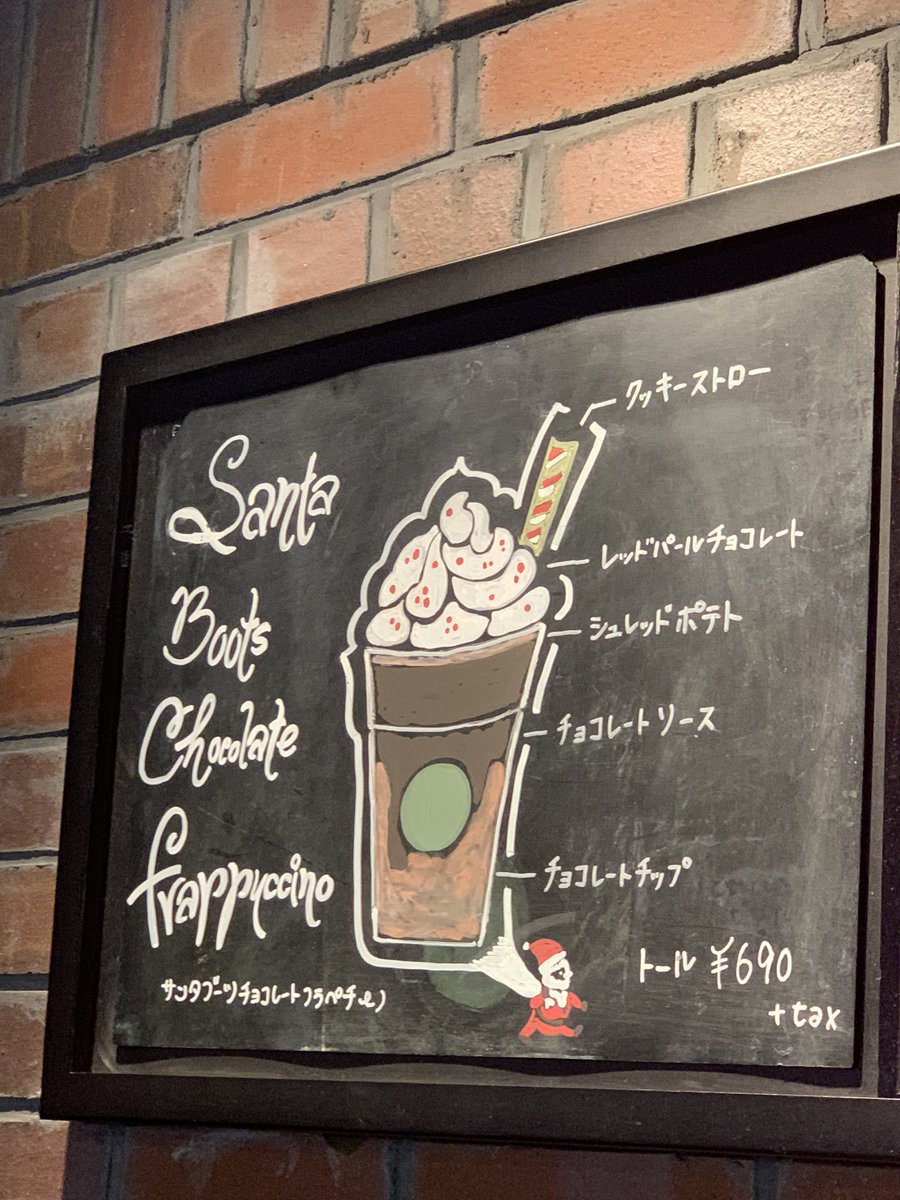 Santa
Boots
Chocolate
frappuccino
サンタブーツチョコレートフラペチーノ
クッキーストロー
レッドパールチョコレート
シュレッドポテト
チョコレートソース
チョコレートチップ
トール ¥690
+tax